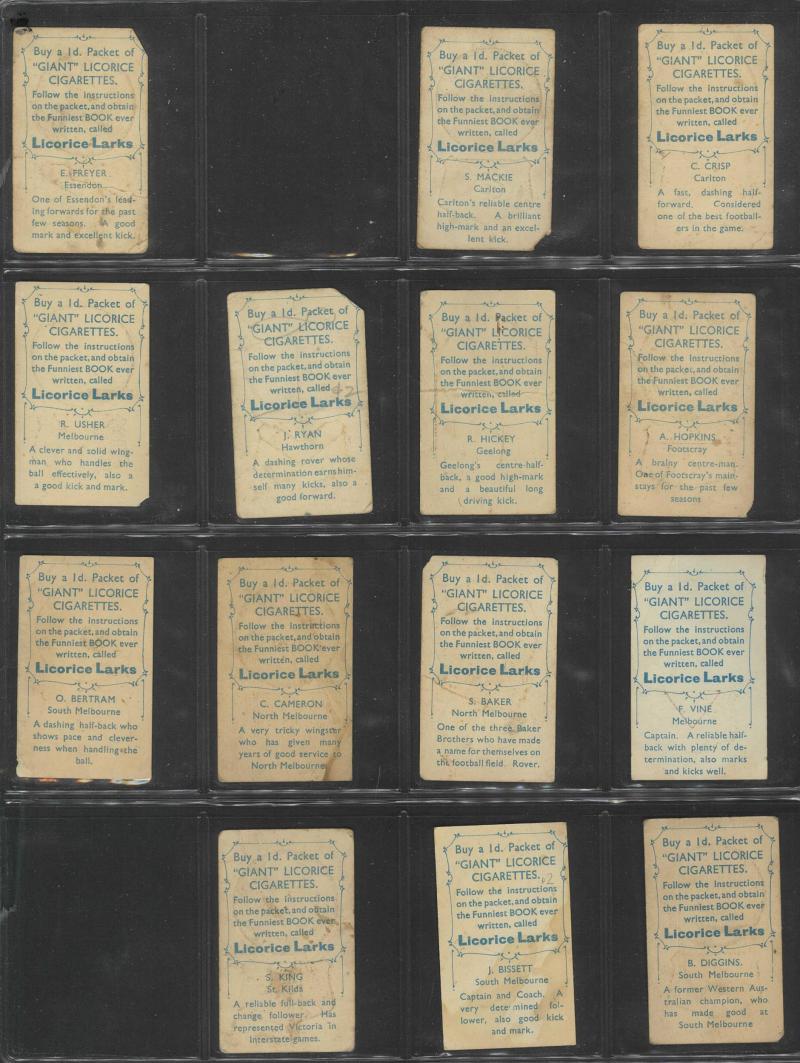 Buy a 1d. Packet of
"GIANT" LICORICE
CIGARETTES.
Follow the instructions
on the packet, and obtain
the Funniest BOOK ever
written, called
Licorice Larks
E. FREYER
Essendon
One of Essendon's lead-
ing forwards for the past
few seasons. A good
mark and excellent kick.
Buy a 1d. Packet of
"GIANT" LICORICE
CIGARETTES.
Follow the instructions
on the packet, and obtain
the Funniest BOOK ever
written, called
Licorice Larks
S. MACKIE
Carlton
Carlton's reliable centre
half-back. A brilliant
high-mark and an excel-
lent kick.
Buy a 1d. Packet of
"GIANT" LICORICE
CIGARETTES.
Follow the instructions
on the packet, and obtain
the Funniest BOOK ever
written, called
Licorice Larks
C. CRISP
Carlton
A fast, dashing half-
forward. Considered
one of the best football-
ers in the game.
Buy a 1d. Packet of
"GIANT" LICORICE
CIGARETTES.
Follow the instructions
on the packet, and obtain
the Funniest BOOK ever
written, called
Licorice Larks
R. USHER
Melbourne
A clever and solid wing-
man who handles the
ball effectively, also a
a good kick and mark.
Buy a 1d. Packet of
"GIANT" LICORICE
CIGARETTES.
Follow the instructions
on the packet, and obtain
the Funniest BOOK ever
written, called
42
Licorice Larks
J. RYAN
Hawthorn
A dashing rover whose
determination earns him-
self many kicks, also a
good forward.
Buy a 1d. Packet of
"GIANT" LICORICE
CIGARETTES.
Follow the instructions
on the packet, and obtain
the Funniest BOOK ever
written, called
Licorice Larks
R. HICKEY
Geelong
Geelong's centre-half-
back, a good high-mark
and a beautiful long
driving kick.
Buy a 1d. Packet of
"GIANT" LICORICE
CIGARETTES.
Follow the instructions
on the packet, and obtain
the Funniest BOOK ever
written, called
Licorice Larks
A. HOPKINS
Footscray
A brainy centre-man.
One of Footscray's main-
stays for the past few
seasons
Buy a 1d. Packet of
"GIANT" LICORICE
CIGARETTES.
Follow the instructions
on the packet, and obtain
the Funniest BOOK ever
written, called
Licorice Larks
O. BERTRAM
South Melbourne
A dashing half-back who
shows pace and clever-
ness when handling the
ball.
Buy a 1d. Packet of
"GIANT" LICORICE
CIGARETTES.
Follow the instructions
on the packet, and obtain
the Funniest BOOK ever
written, called
Licorice Larks
C. CAMERON
North Melbourne
A very tricky wingster
who has given many
years of good service to
North Melbourne.
Buy a 1d. Packet of
"GIANT" LICORICE
CIGARETTES.
Follow the instructions
on the packet, and obtain
the Funniest BOOK ever
written, called
Licorice Larks
S. BAKER
North Melbourne
One of the three Baker
Brothers who have made
a name for themselves on
the football field. Rover.
Buy a 1d. Packet of
"GIANT" LICORICE
CIGARETTES.
Follow the instructions
on the packet, and obtain
the Funniest BOOK ever
written, called
Licorice Larks
F. VINE
Melbourne
Captain. A reliable half-
back with plenty of de-
termination, also marks
and kicks well.
Buy a 1d. Packet of
"GIANT" LICORICE
CIGARETTES.
Follow the instructions
on the packet, and obtain
the Funniest BOOK ever
written, called
Licorice Larks
S. KING
St. Kilda
A reliable full-back and
change follower. Has
represented Victoria in
Interstate games.
Buy a 1d. Packet of
"GIANT" LICORICE
CIGARETTES.
Follow the instructions
on the packet, and obtain
the Funniest BOOK ever
written, called
Licorice Larks
J. BISSETT
South Melbourne
Captain and Coach. A
very determined fol-
lower, also good kick
and mark.
Buy a 1d. Packet of
"GIANT" LICORICE
CIGARETTES.
Follow the instructions
on the packet, and obtain
the Funniest BOOK ever
written, called
Licorice Larks
B. DIGGINS.
South Melbourne
A former Western Aus-
tralian champion, who
has made good at
South Melbourne